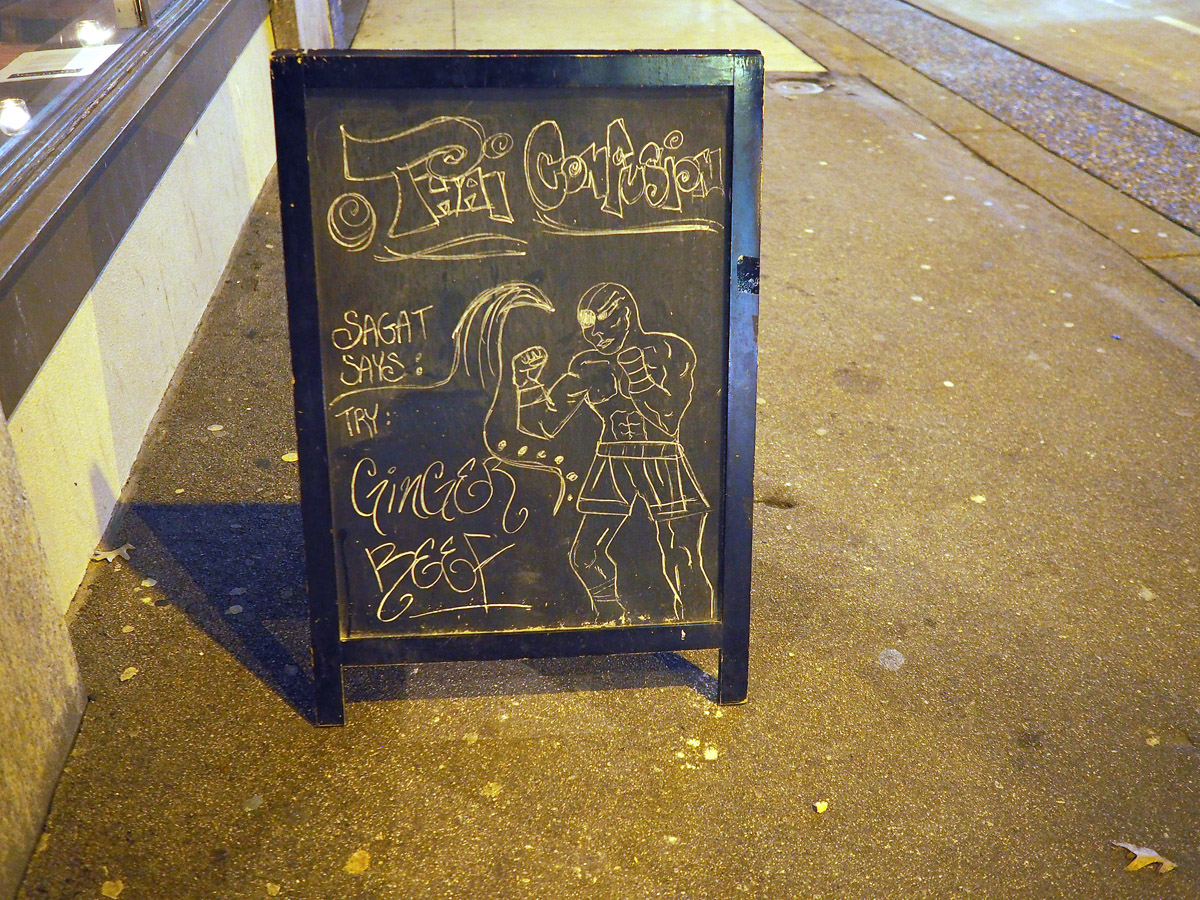 THAI CONFUSION
SAGAT
SAYS:
TRY:
GINGER
BEEF